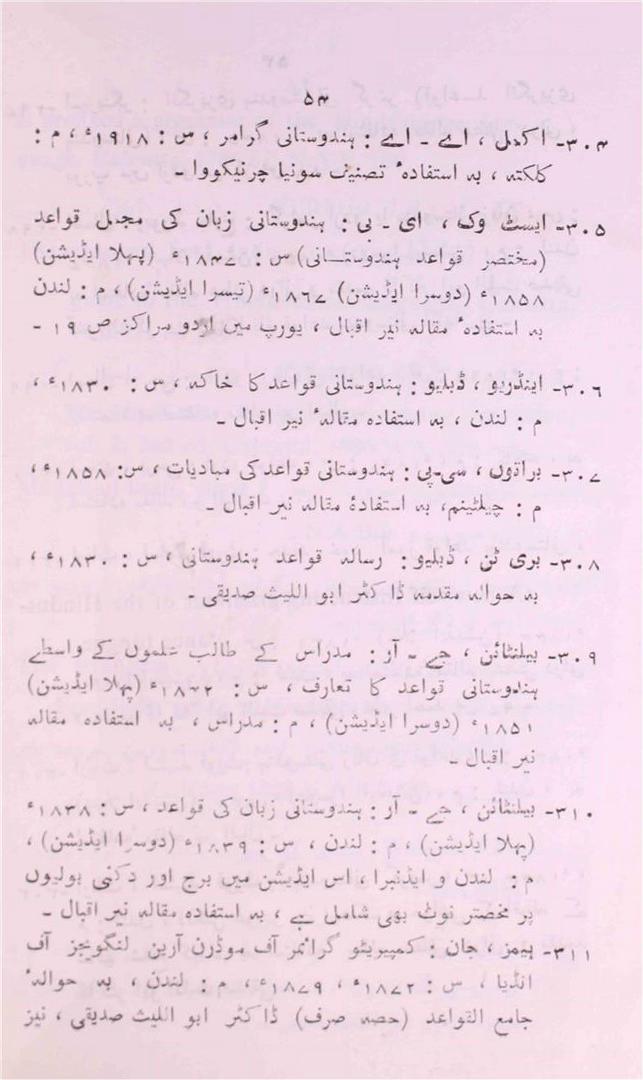 ۵۳
۳۰۴- اکمل ، اے - اے : ہندوستانی گرامر ، س : ۱۹۱۸ء ، م :
کلکتہ ، بہ استفادہٴ تصنیف سونیا چرنیکووا -
۳۰۵- ایسٹ وک ، ای - بی : ہندوستانی زبان کی مجمل قواعد
(مختصر قواعد ہندوستانی) س : ۱۸۴۷ء (پہلا ایڈیشن)
۱۸۵۸ء (دوسرا ایڈیشن) ۱۸۶۷ء (تیسرا ایڈیشن) ، م : لندن
بہ استفادہٴ مقالہ نیر اقبال ، یورپ میں اردو مراکز ص ۱۹ -
۳۰۶- اینڈریو ، ڈبلیو : ہندوستانی قواعد کا خاکہ ، س : ۱۸۳۰ء ،
م : لندن ، بہ استفادہ مقالہٴ نیر اقبال -
۳۰۷- براؤن ، سی-پی : ہندوستانی قواعد کی مبادیات ، س: ۱۸۵۸ء ،
م : چیلٹینم، بہ استفادۂ مقالہ نیر اقبال -
۳۰۸- بری ٹن ، ڈبلیو : رسالہ قواعد ہندوستانی ، س : ۱۸۳۰ء ،
بہ حوالہ مقدمہ ڈاکٹر ابو اللیث صدیقی -
۳۰۹- بیلنٹائن ، جے - آر : مدراس کے طالب علموں کے واسطے
ہندوستانی قواعد کا تعارف ، س : ۱۸۴۲ء (پہلا ایڈیشن)
۱۸۵۱ء (دوسرا ایڈیشن) ، م : مدراس ، بہ استفادہ مقالہ
نیر اقبال -
۳۱۰- بیلنٹائن ، جے - آر : ہندوستانی زبان کی قواعد ، س : ۱۸۳۸ء
(پہلا ایڈیشن) ، م : لندن ، س : ۱۸۳۹ء (دوسرا ایڈیشن) ،
م : لندن و ایڈنبرا ، اس ایڈیشن میں برج اور دکنی بولیوں
پر مختصر نوٹ بھی شامل ہے ، بہ استفادہ مقالہ نیر اقبال -
۳۱۱- بیمز ، جان : کمپریٹو گرائمر آف موڈرن آرین لنگویجز آف
انڈیا ، س : ۱۸۷۲ء ، ۱۸۷۹ء ، م : لندن ، بہ حوالہٴ
جامع القواعد (حصہ صرف) ڈاکٹر ابو اللیث صدیقی ، نیز